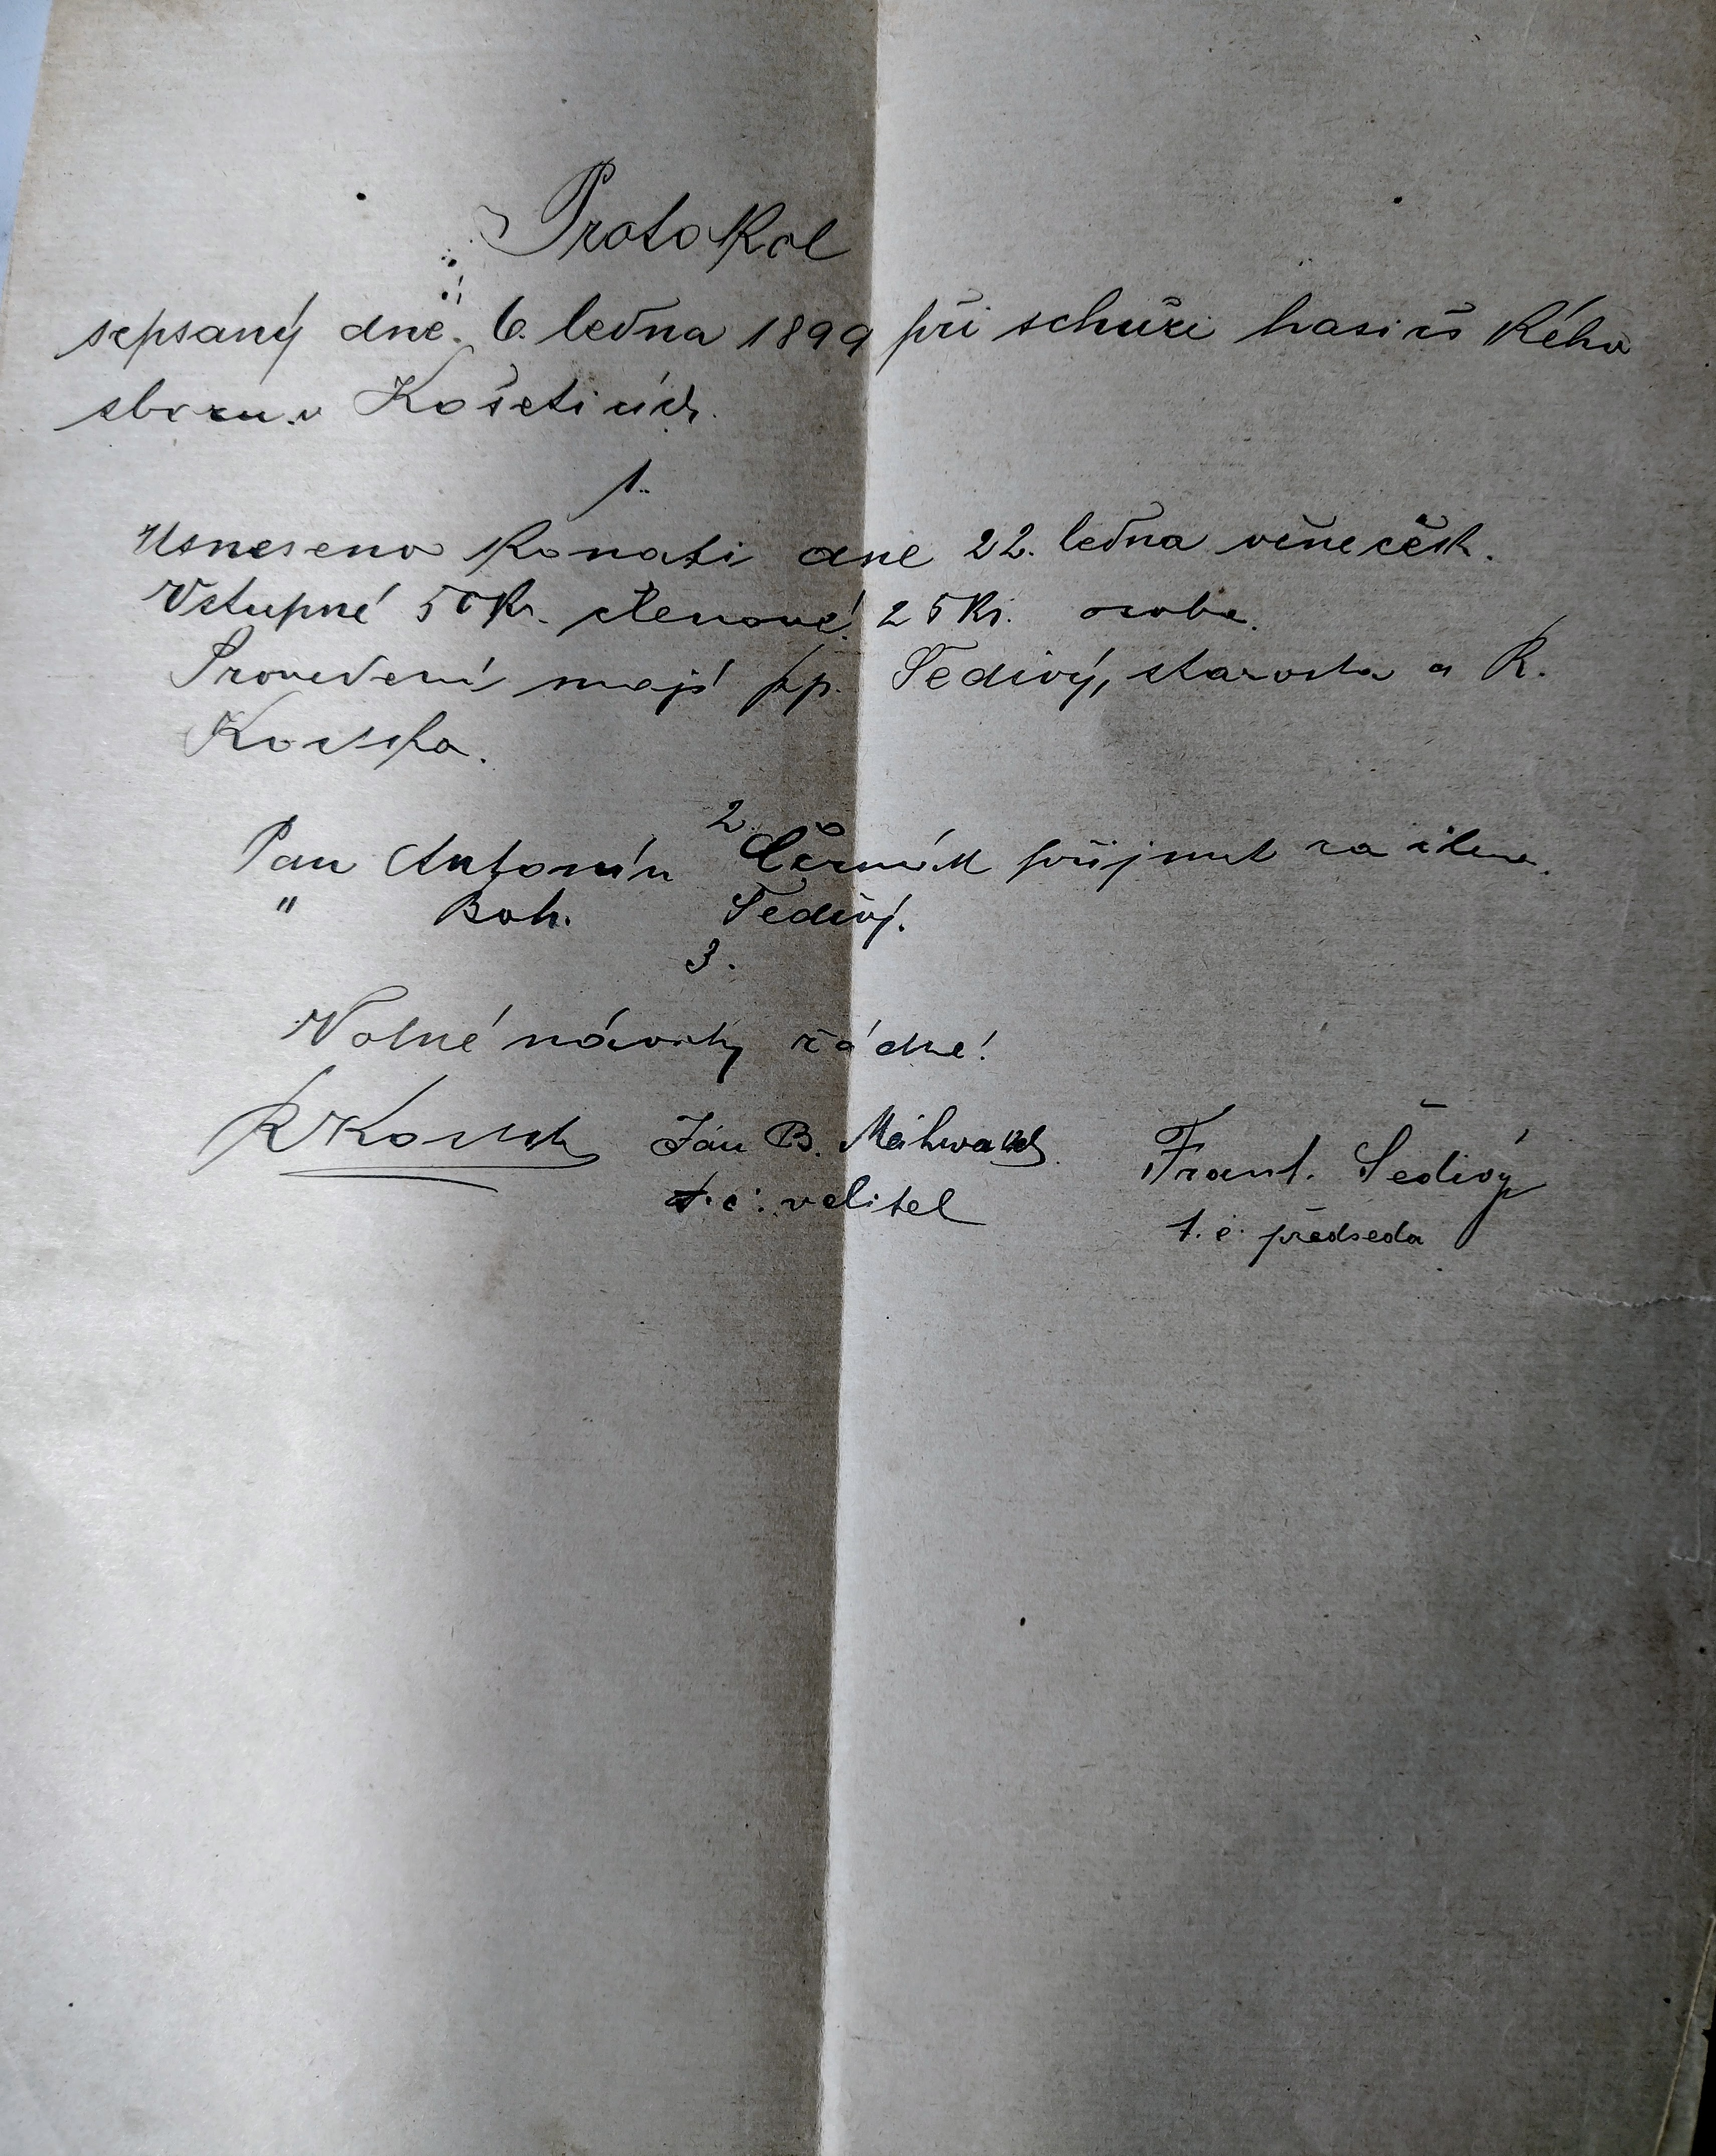 Protokol
sepsaný dne 6. ledna 1899 při schůzi hasičského
sboru v Košeticích.
1.
Usneseno konati dne 22. ledna věneček.
Vstupné 50 kr. členové 25 kr. osoba.
Provedení mají pp. Šedivý, starosta a R.
2.
Pan Antonín Čermák přijmut za člena.
" Boh. Šedivý.
3.
Volné návrhy žádné!
Jan B.
t. č. velitel
Frant. Šedivý
t. č. předseda